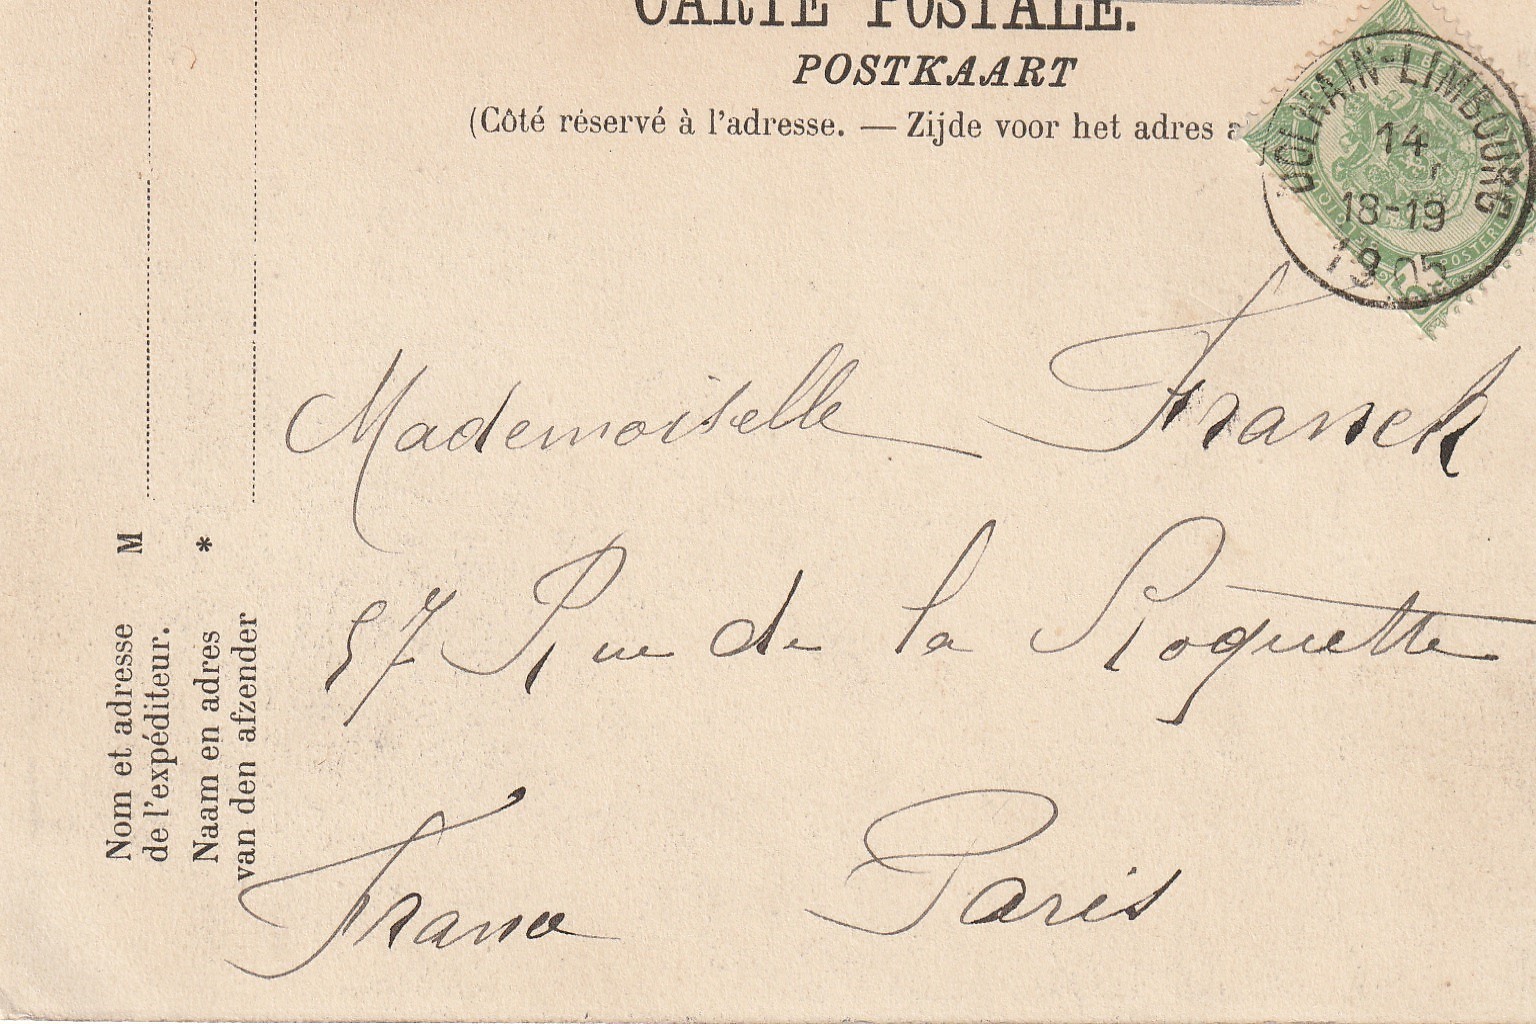 CARTE POSTALE.
POSTKAART
(Côté réservé à l'adresse. — Zijde voor het adres a
DOLHAIN-LIMBOURG
14
18-19
1905
Mademoiselle Franck
57 Rue de la Roquette
France Paris
M
*
Nom et adresse
de l'expéditeur.
Naam en adres
van den afzender